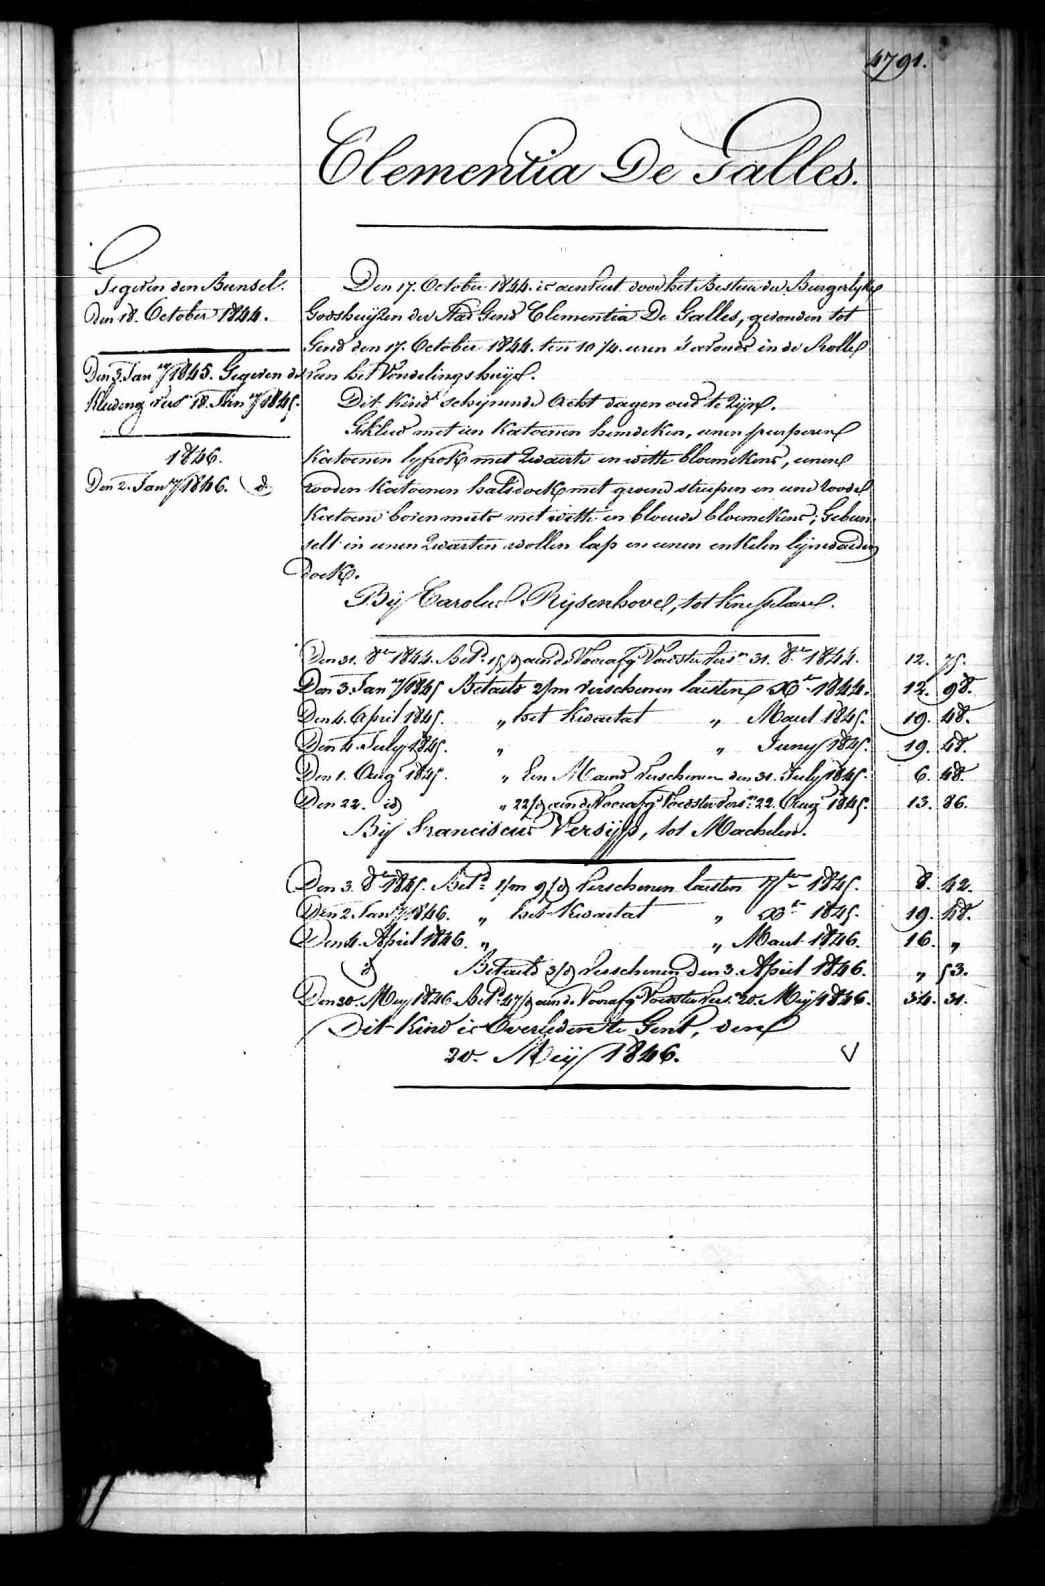 4791.
Clementia De Galles.
Gegeven den Bunsel.
Den 18. October 1844.
Den 3. Jan.ry 1845. Gegeven de
Kleding
1846.
Den 2. Jan.ry 1846. id
Den 17. October 1844. is aenveert door het Bestier der Burgerlyke
Godshuijzen der Stad Gend Clementia De Galles, gevonden tot
Gend den 17. October 1844. ten 10 ¼ uren 's avonds in de Rolle
van het Vondelingshuijs.
Dit Kind schynende Acht dagen oud te Zijn.
Gekleed met een Katoenen hemdeken, eenen purperen
Katoenen lyfrok met Zwarte en witte bloemekens, eenen
rooden Katoenen halsdoek met groene streepen en eene roode
Katoene boven muts met witte en blouwe bloemekens; Gebun
selt in eenen Zwarten wollen lap en eenen enkelen lijnwaeden
doek.
Bij Carolus Rijsenhove, tot Knesselaere.
Den 31. 8.er 1844. Bet.d 15/d aen de Voorafg.e Voedster vers.n 31. 8.er 1844. 12. 75.
Den 3. Jan.ry 1845 Betaelt 2/m verschenen laesten X.er 1844. 12. 98.
Den 4. April 1845. „ het Kwartael „ Maert 1845. 19. 48.
Den 4. July 1845. „ „ Juny 1845. 19. 48.
Den 1. Aug. 1845. „ Een Maend verschenen den 31. July 1845. 6. 48
Den 22. id „ 22/d aen de Voorafg.e Voedster vers.n 22. Aug. 1845. 13. 86.
Bij Franciscus Versijp, tot Machelen.
Den 3. 8.er 1845. Bet.d 1/m 9/d verschenen laesten 7.ber 1845. 8. 42.
Den 2. Jan.ry 1846. „ het Kwartael „ X.er 1845. 19. 48.
Den 4. April 1846. „ „ Maert 1846. 16. „
id Betaeld 3/d verschenen den 3. April 1846. „ 53.
Den 20. Mey 1846 Bet.d 47/d aen de Voorafg.e Voedster vers.n 20. Meij 1846. 34. 31.
Dit Kind is Overleden te Gent, den
20. Meij 1846. V